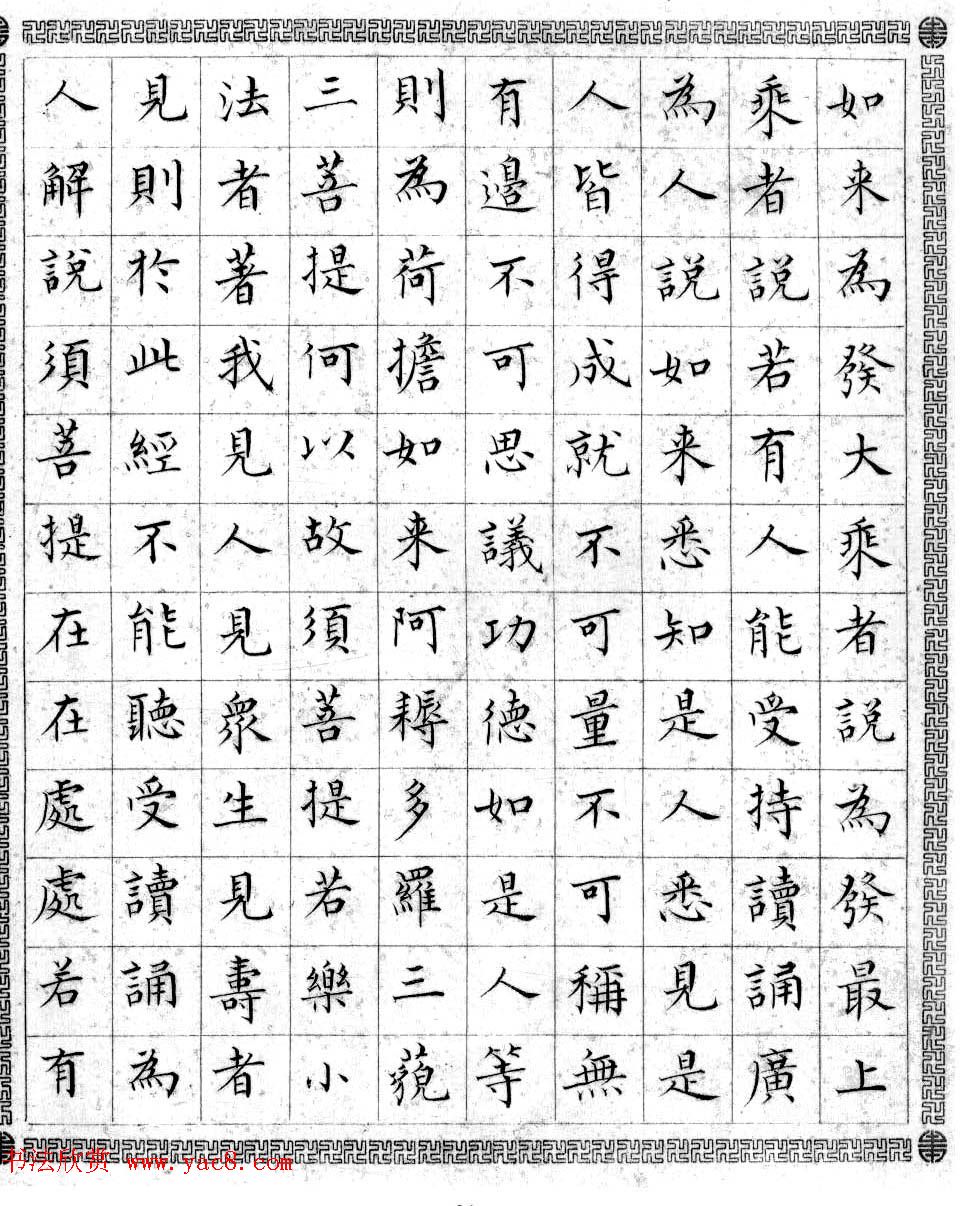 如来為發大乘者說為發最上
乘者說若有人能受持讀誦廣
為人說如来悉知是人悉見是
人皆得成就不可量不可稱無
有邊不可思議功徳如是人等
則為荷擔如来阿耨多羅三藐
三菩提何以故須菩提若樂小
法者著我見人見衆生見壽者
見則於此經不能聽受讀誦為
人解說須菩提在在處處若有
书法欣赏 www.yac8.com